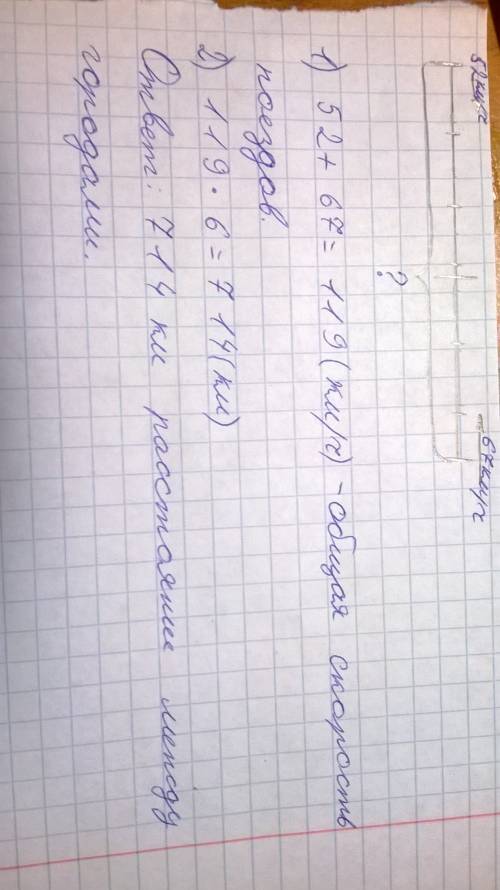 52км/ч 67км/ч
?
1) 52 + 67 = 119 (км/ч) - общая скорость
поездов.
2) 119 · 6 = 714 (км)
Ответ: 714 км расстояние между
городами.